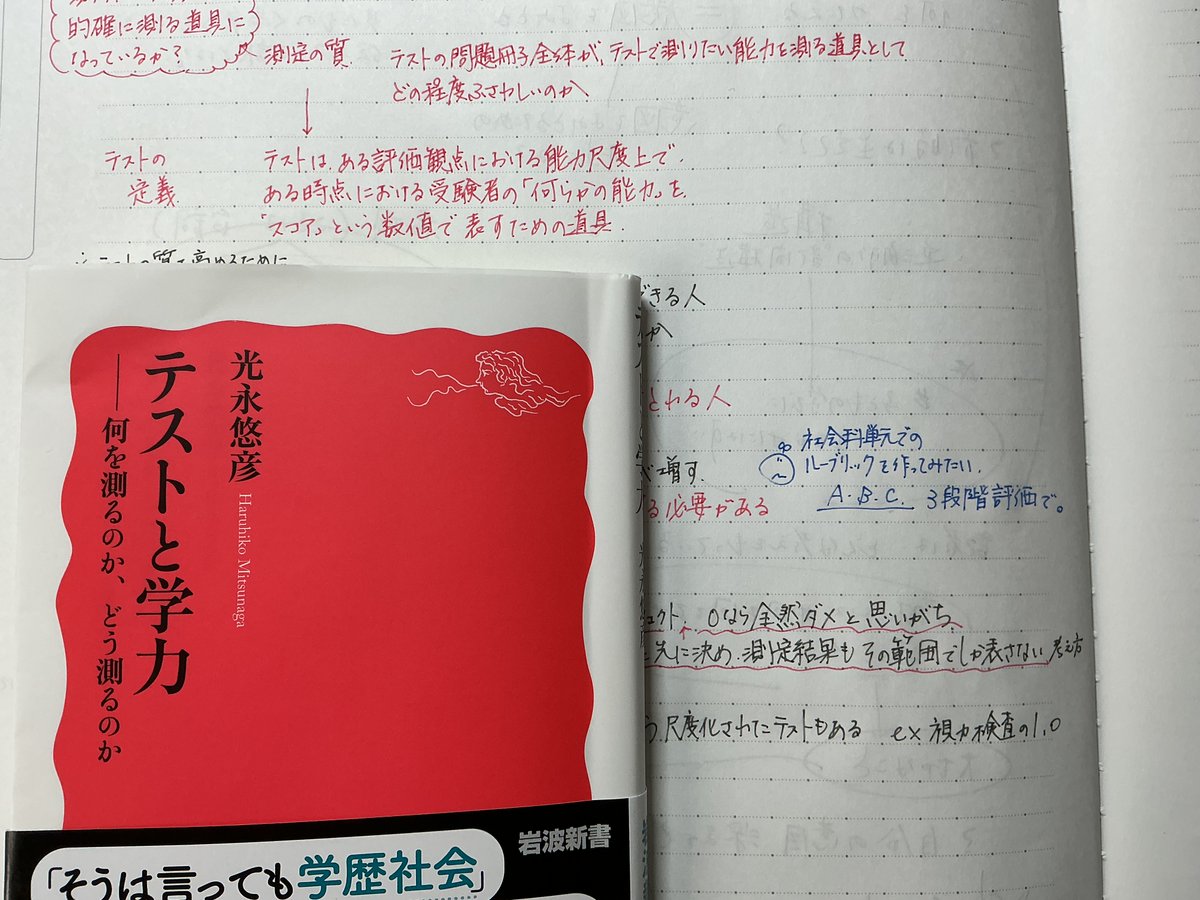 的確に測る道具に
なっているか？
測定の質 テストの問題冊子全体が、テストで測りたい能力を測る道具として
どの程度ふさわしいのか
テストの
定義
テストは、ある評価観点における能力尺度上で、
ある時点における受験者の「何らかの能力」を
「スコア」という数値で表すための道具.
テストの質を高めるために
できる人
か
とれる人
増す.
る必要がある
社会科単元での
ルーブリックを作ってみたい.
A.B.C. 3段階評価で。
0なら全然ダメと思いがち.
先に決め、測定結果もその範囲でしか表さない考え方
尺度化されたテストもある ex 視力検査の1.0
光永悠彦
Haruhiko Mitsunaga
テストと学力
──何を測るのか、どう測るのか
岩波新書
「そうは言っても学歴社会」